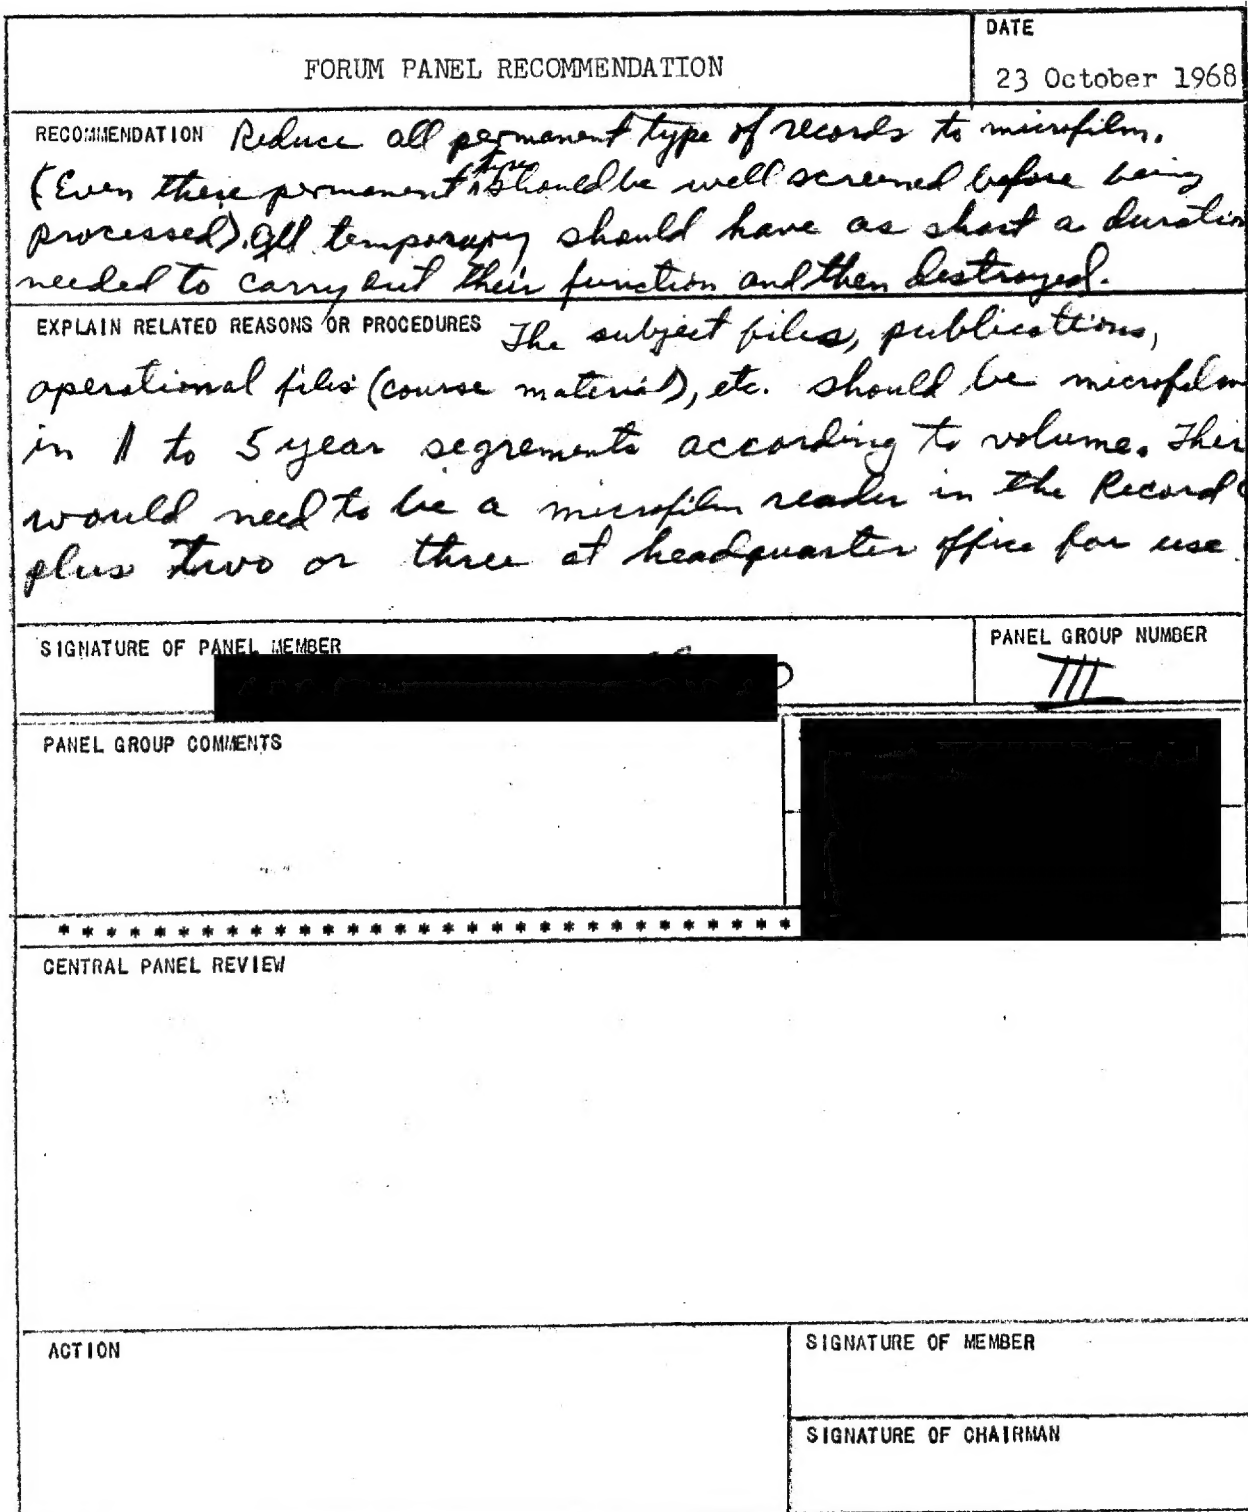 DATE
FORUM PANEL RECOMMENDATION
23 October 1968
RECOMMENDATION Reduce all permanent type of records to microfilm.
(Even these permanent type should be well screened before being
processed). All temporary should have as short a duration
needed to carry out their function and then destroyed.
EXPLAIN RELATED REASONS OR PROCEDURES The subject files, publications,
operational files (course material), etc. should be microfilm
in 1 to 5 year segrements according to volume. Ther
would need to be a microfilm reader in the Record
plus two or three at headquarter office for use.
SIGNATURE OF PANEL MEMBER
PANEL GROUP NUMBER
III
PANEL GROUP COMMENTS
* * * * * * * * * * * * * * * * * * * * * * * * * * * * * * *
CENTRAL PANEL REVIEW
ACTION
SIGNATURE OF MEMBER
SIGNATURE OF CHAIRMAN